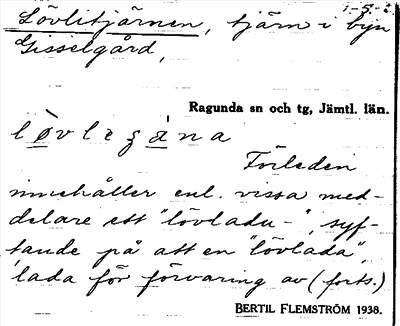 Lövlitjärnen, tjärn i byn
Gisselgård,
Ragunda sn och tg, Jämtl. län.
Förleden
innehåller enl. vissa med-
delare ett "lövladu-", syf-
tande på att en "lövlada",
lada för förvaring av (forts.)
BERTIL FLEMSTRÖM 1938.